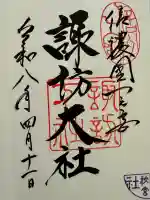 信濃國一之宮
諏訪大社
令和八年四月十一日
秋宮